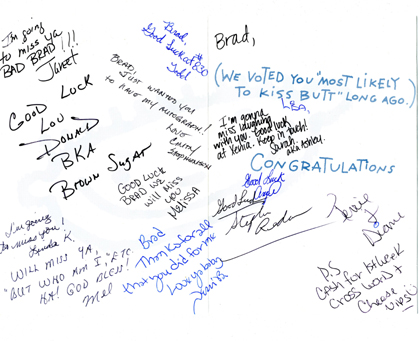 I'm going
to miss ya
BAD BRAD!!!
Janet
GOOD LUCK
LOU
DONALD
BKA
BROWN SUGAR
Brad,
Good Luck at
BRAD,
JUST WANTED YOU
TO HAVE MY AUTOGRAPH!
LUV
CATHY
GOOD LUCK
BRAD WE
WILL MISS
YOU
MELISSA
I'm going
to miss you!
Linda K.
WILL MISS YA,
"BUT WHO AM I," ETC
HA! GOD BLESS!
Mel
Brad
Thanks for all
that you did for me
Love ya baby
Brad,
(WE VOTED YOU "MOST LIKELY
TO KISS BUTT" LONG AGO.)
I'm gonna
miss laughing
with you. Good luck
at Xenia. Keep in touch!
Sarah
aka Ashley.
CONGRATULATIONS
Good Luck
Good Luck
Diane
P.S.
Cash for
Cross word +
Cheese